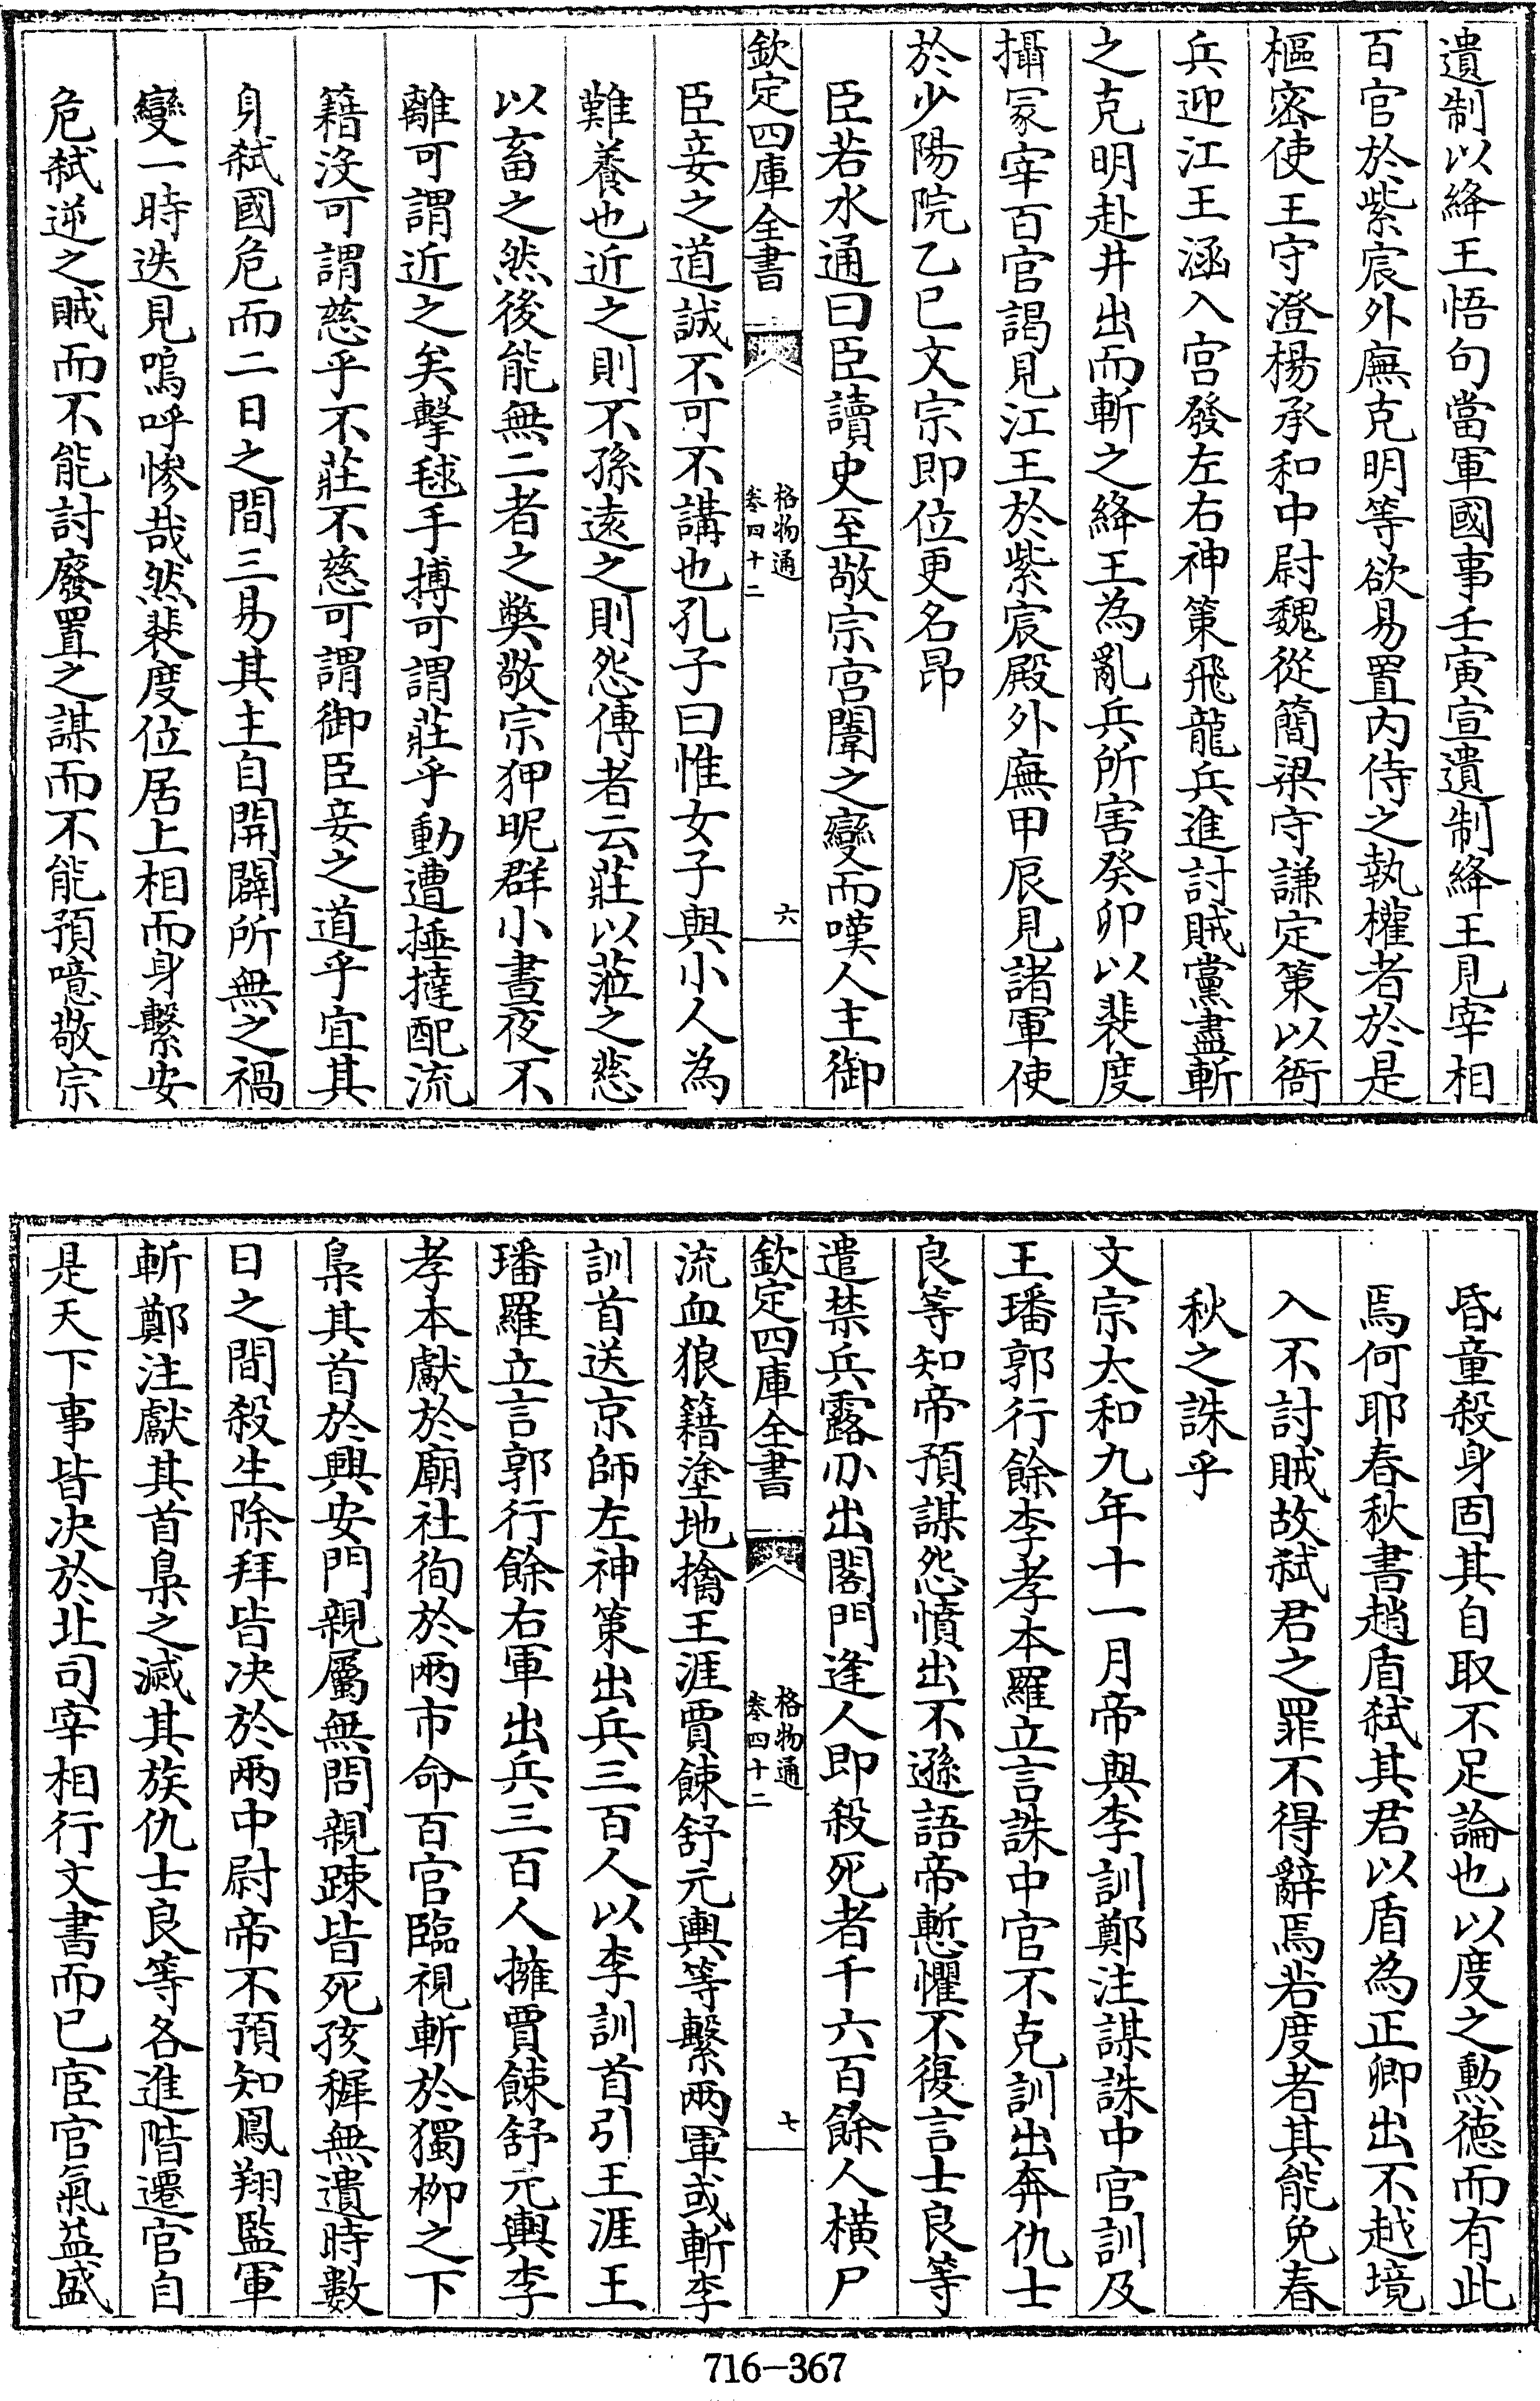 遺制以絳王悟句當軍國事壬寅宣遺制絳王見宰相
百官於紫宸外廡克明等欲易置内侍之執權者於是
樞密使王守澄楊承和中尉魏從簡梁守謙定策以衙
兵迎江王涵入宫發左右神策飛龍兵進討賊黨盡斬
之克明赴井出而斬之絳王為亂兵所害癸卯以裴度
攝冡宰百官謁見江王於紫宸殿外廡甲辰見諸軍使
於少陽院乙巳文宗即位更名昂
臣若水通曰臣讀史至敬宗宫闈之變而嘆人主御
欽定四庫全書
格物通
卷四十二
六
臣妾之道誠不可不講也孔子曰惟女子與小人為
難養也近之則不孫逺之則怨傳者云莊以涖之慈
以畜之然後能無二者之獘敬宗狎昵群小晝夜不
離可謂近之矣擊毬手搏可謂莊乎動遭捶撻配流
籍沒可謂慈乎不莊不慈可謂御臣妾之道乎宜其
身弑國危而二日之間三易其主自開闢所無之禍
變一時迭見嗚呼惨哉然裴度位居上相而身繫安
危弑逆之賊而不能討廢置之謀而不能預噫敬宗
昏童殺身固其自取不足論也以度之勲徳而有此
焉何耶春秋書趙盾弑其君以盾為正卿出不越境
入不討賊故弑君之罪不得辭焉若度者其能免春
秋之誅乎
文宗太和九年十一月帝與李訓鄭注謀誅中官訓及
王璠郭行餘李孝本羅立言誅中官不克訓出奔仇士
良等知帝預謀怨憤出不遜語帝慙懼不復言士良等
遣禁兵露刃出閤門逢人即殺死者千六百餘人横尸
欽定四庫全書
格物通
卷四十二
七
流血狼籍塗地擒王涯賈餗舒元輿等繫兩軍或斬李
訓首送京師左神策出兵三百人以李訓首引王涯王
璠羅立言郭行餘右軍出兵三百人擁賈餗舒元輿李
孝本獻於廟社徇於兩市命百官臨視斬於獨柳之下
梟其首於興安門親屬無問親踈皆死孩穉無遺時數
日之間殺生除拜皆决於兩中尉帝不預知鳳翔監軍
斬鄭注獻其首梟之滅其族仇士良等各進階遷官自
是天下事皆决於北司宰相行文書而已宦官氣益盛
716-367